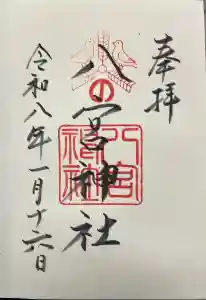 奉拝
八の宮神社
八宮
神社
令和八年一月十六日